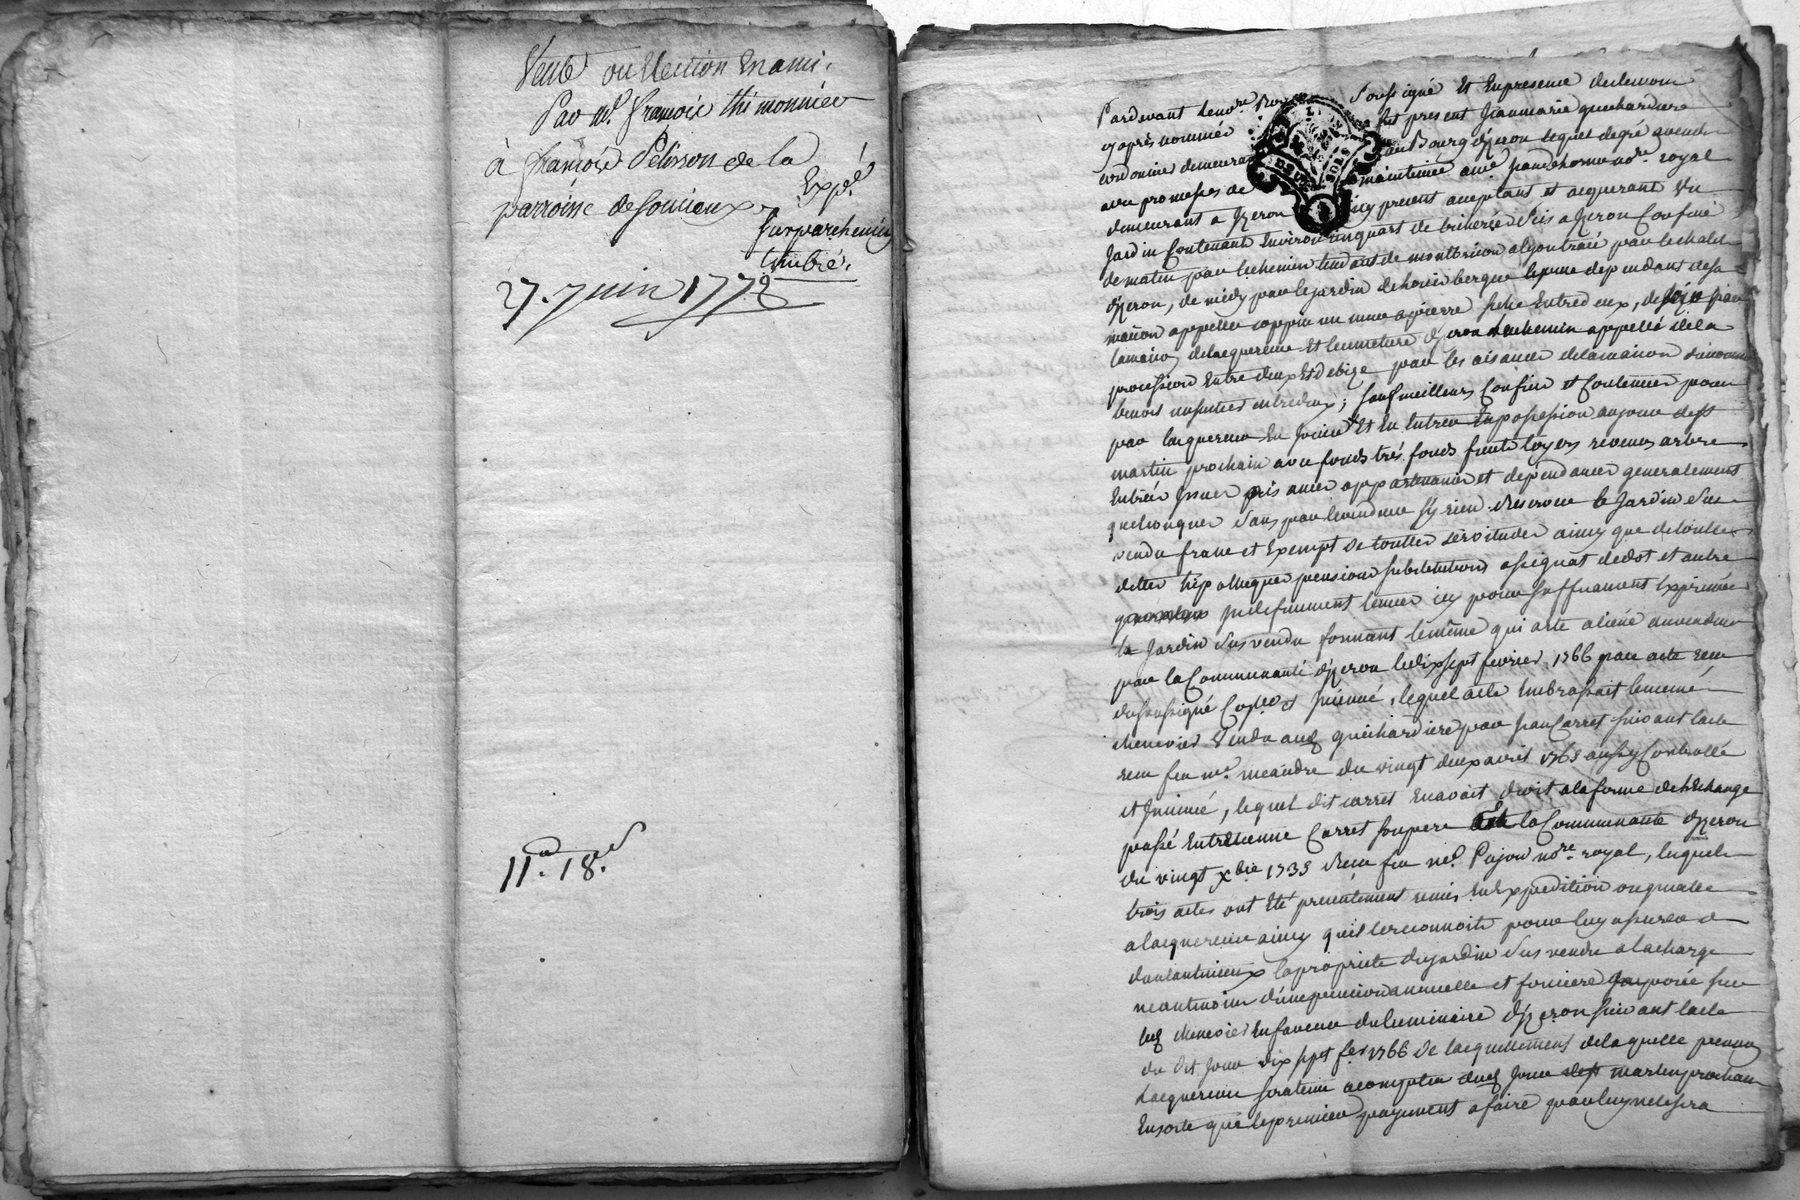 Vente ou Election En ami.
Par Mr. françois thimonnier
à françois Pelisson de la
parroisse de soucieux.
Expé.
sur parchemin
timbré.
27. Juin 1772
11.. 18..
Pardevant le nore. Roy soussigné Et En presence des temoins
cy après nommés fut present guichardiere
cordonnier demeurant au Bourg d'yzeron lequel de gré a vendu
avec promesses de maintenir a me. nore. royal
demeurant a yzeron icy present acceptant et acquerant Un
Jardin Contenant Environ un quart de bicherée sis a yzeron Confiné
de matin par le chemin tendant de montbrison a lyon traié par le
dyzeron, de midy par le jardin de dependant de sa
maison appellée un mur a pierre seche Entredeux, de soir par
la maison de lacquereur Et le cimetiere dyzeron le chemin appellé de la
procession Entre deux Et de bize par les aisances de la maison
benoit ; sauf meilleurs Confins et Contenue pour
par lacquereur En Jouir Et En Entrer En possession au jour de st
martin prochain avec fonds très fonds fruits loyers revenus arbres
Entrées Issues aisances appartenances et dependances generalement
quelconques sans par le vendeur sy rien Reserver le Jardin sus
vendu franc et Exempt de touttes servitudes ainsy que de touttes
dettes hipotheques pensions substitutions assignat de dot et autre
indefiniment tenues icy pour suffisament Exprimées
le Jardin sus vendu formant le même qui a été aliéné au vendeur
par la Communauté dyzeron le dix sept fevrier 1766 par acte recu
du soussigné Collé et Insinué, lequel acte Embrassait
chenevier Vendu aud guichardiere par Jean Carret suivant lacte
recu feu me. meandre du vingt deux avril 1763 aussy Controllé
et Insinué, lequel dit carret En avoit droit a la forme de lEchange
passé Entre Etienne Carret son pere Et la Communauté dyzeron
du vingt xbre 1733 Recu feu me. Pujon nore. royal, lesquels
trois actes ont Eté presentement remis En Expedition originale
a lacquereur ainsy qu'il le reconnoit pour luy assurer
dautant mieux la propriete du jardin sus vendu a la charge
neantmoins d'une pension annuelle et fonciere Imposée sur
led chenevier En faveur du luminaire dyzeron suivant lacte
du dit Jour dix sept fer 1766 de lacquittement de laquelle pension
Lacquereur sera tenu a compter dud Jour st martin prochain
En sorte que le premier payement a faire par luy ne sera